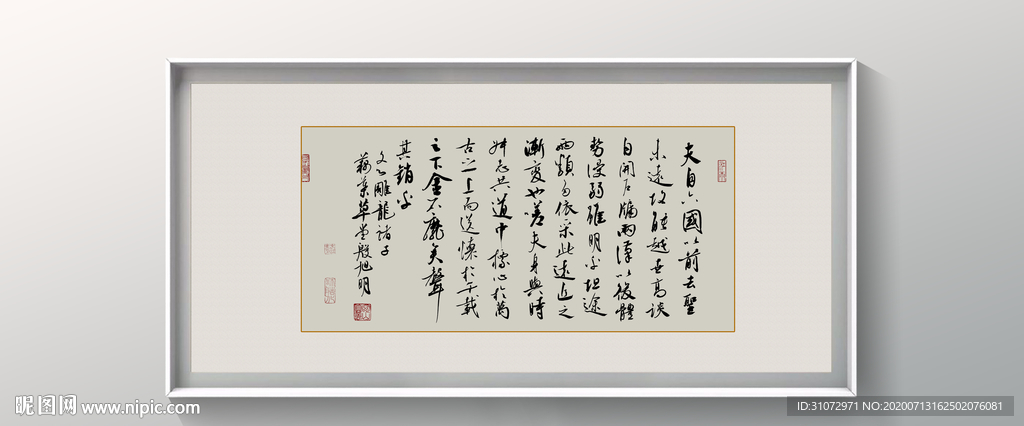 夫自六國以前去聖
未遠故能越世高談
自開戶牖兩漢以後體
勢漫弱雖明乎坦途
而類多依采此遠近之
漸變也嗟夫身與時
舛志共道中標心於萬
古之上而送懷於千載
之下金石靡矣聲
其銷乎
文心雕龍諸子
草堂殷旭明
昵图网 www.nipic.com
ID:31072971 NO:20200713162502076081